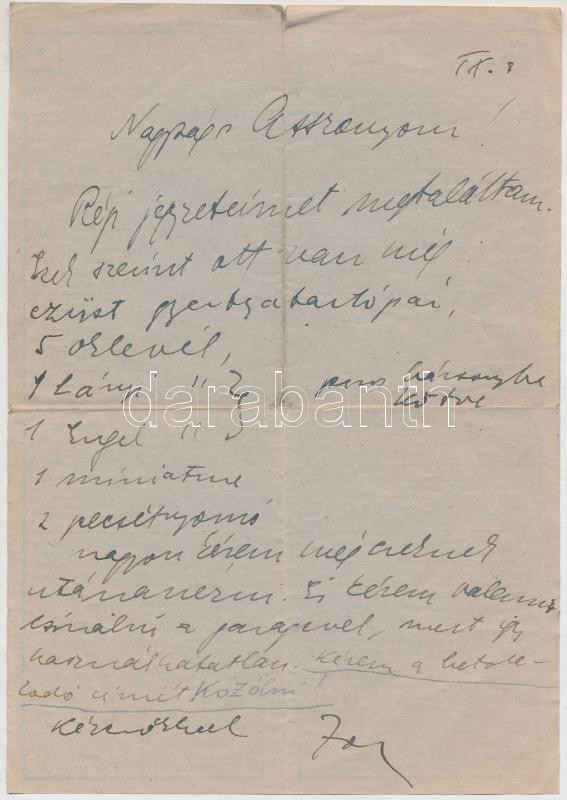 IX. 3
Nagysás Asszonyom!
Régi jegyzeteimet megtaláltam.
Ezek szerint ott van még:
ezüst gyertyatartópár,
5 oklevél,
1 Lányi " 2 piros bársonyba
kötve
1 Engel " 3
1 miniature
2 pecsétnyomó
nagyon kérem még ezeknek
utánanézni. És kérem valamit
csinálni a garage-vel, mert így
használhatatlan. Kérem a betole-
kodó címét közölni!
Kézcsókkal
darabanth.com